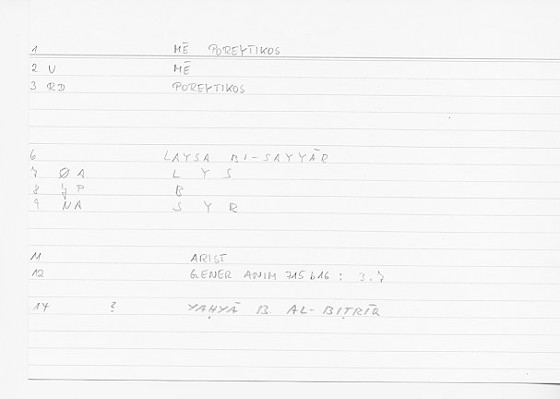 1 MĒ POREYTIKOS
2 V MĒ
3 RD POREYTIKOS
6 LAYSA BI-SAYYĀR
7 ØA L Y S
8 P B
9 NA S Y R
11 ARIST
12 GENER ANIM 715 b16 : 3.7
14 ? YAḤYĀ B. AL-BIṬRĪQ